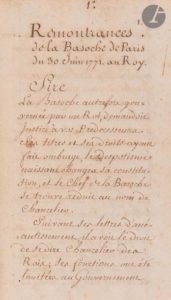 1.
Remontrances
de la Basoche de Paris
du 30 Juin 1771. au Roy.
Sire
La Basoche autrefois gou-
vernée par un Roy, demandoit
Justice à vos Predecesseurs
Ses titres et ses droits ayant
fait ombrage, le despotisme
naissant changea sa constitu-
tion, et le Chef de la Basoche
se trouva reduit au nom de
Chancelier.
Suivant ses lettres d'ane-
antissement il avoit le droit
de se dire Chancelier des
Rois, ses fonctions
au Gouvernement